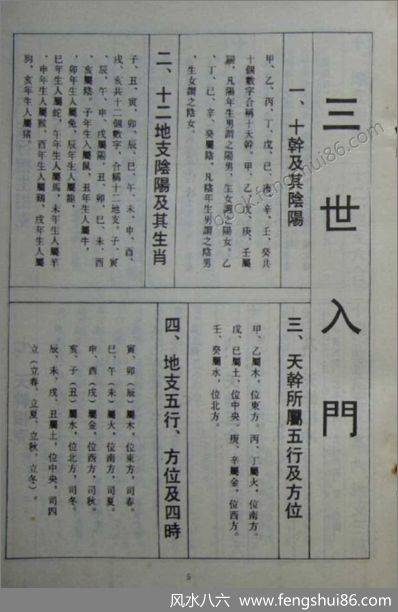 三世入門
一、十幹及其陰陽
甲、乙、丙、丁、戊、己、庚、辛、壬、癸共
十個數字合稱十天幹。甲、丙、戊、庚、壬屬
陽,凡陽年生男謂之陽男,生女謂之陽女。乙
、丁、己、辛、癸屬陰,凡陰年生男謂之陰男
,生女謂之陰女。
二、十二地支陰陽及其生肖
子、丑、寅、卯、辰、巳、午、未、申、酉、
戌、亥共十二個數字,合稱十二地支。子、寅
、辰、午、申、戌屬陽,丑、卯、巳、未、酉
、亥屬陰。子年生人屬鼠,丑年生人屬牛,
,卯年生人屬兔,辰年生人屬龍,
巳年生人屬蛇,午年生人屬馬,未年生人屬羊
,申年生人屬猴,酉年生人屬鷄,戌年生人屬
狗,亥年生人屬猪。
三、天幹所屬五行及方位
甲、乙屬木,位東方。丙、丁屬火,位南方。
戊、己屬土,位中央。庚、辛屬金,位西方。
壬、癸屬水,位北方。
四、地支五行、方位及四時
寅、卯(辰)屬木,位東方,司春。
巳、午(未)屬火,位南方,司夏。
申、酉(戌)屬金,位西方,司秋。
亥、子(丑)屬水,位北方,司冬。
辰、未、戌、丑屬土,位中央,司四
立(立春、立夏、立秋、立冬)。
5
风水八六 www.fengshui86.com